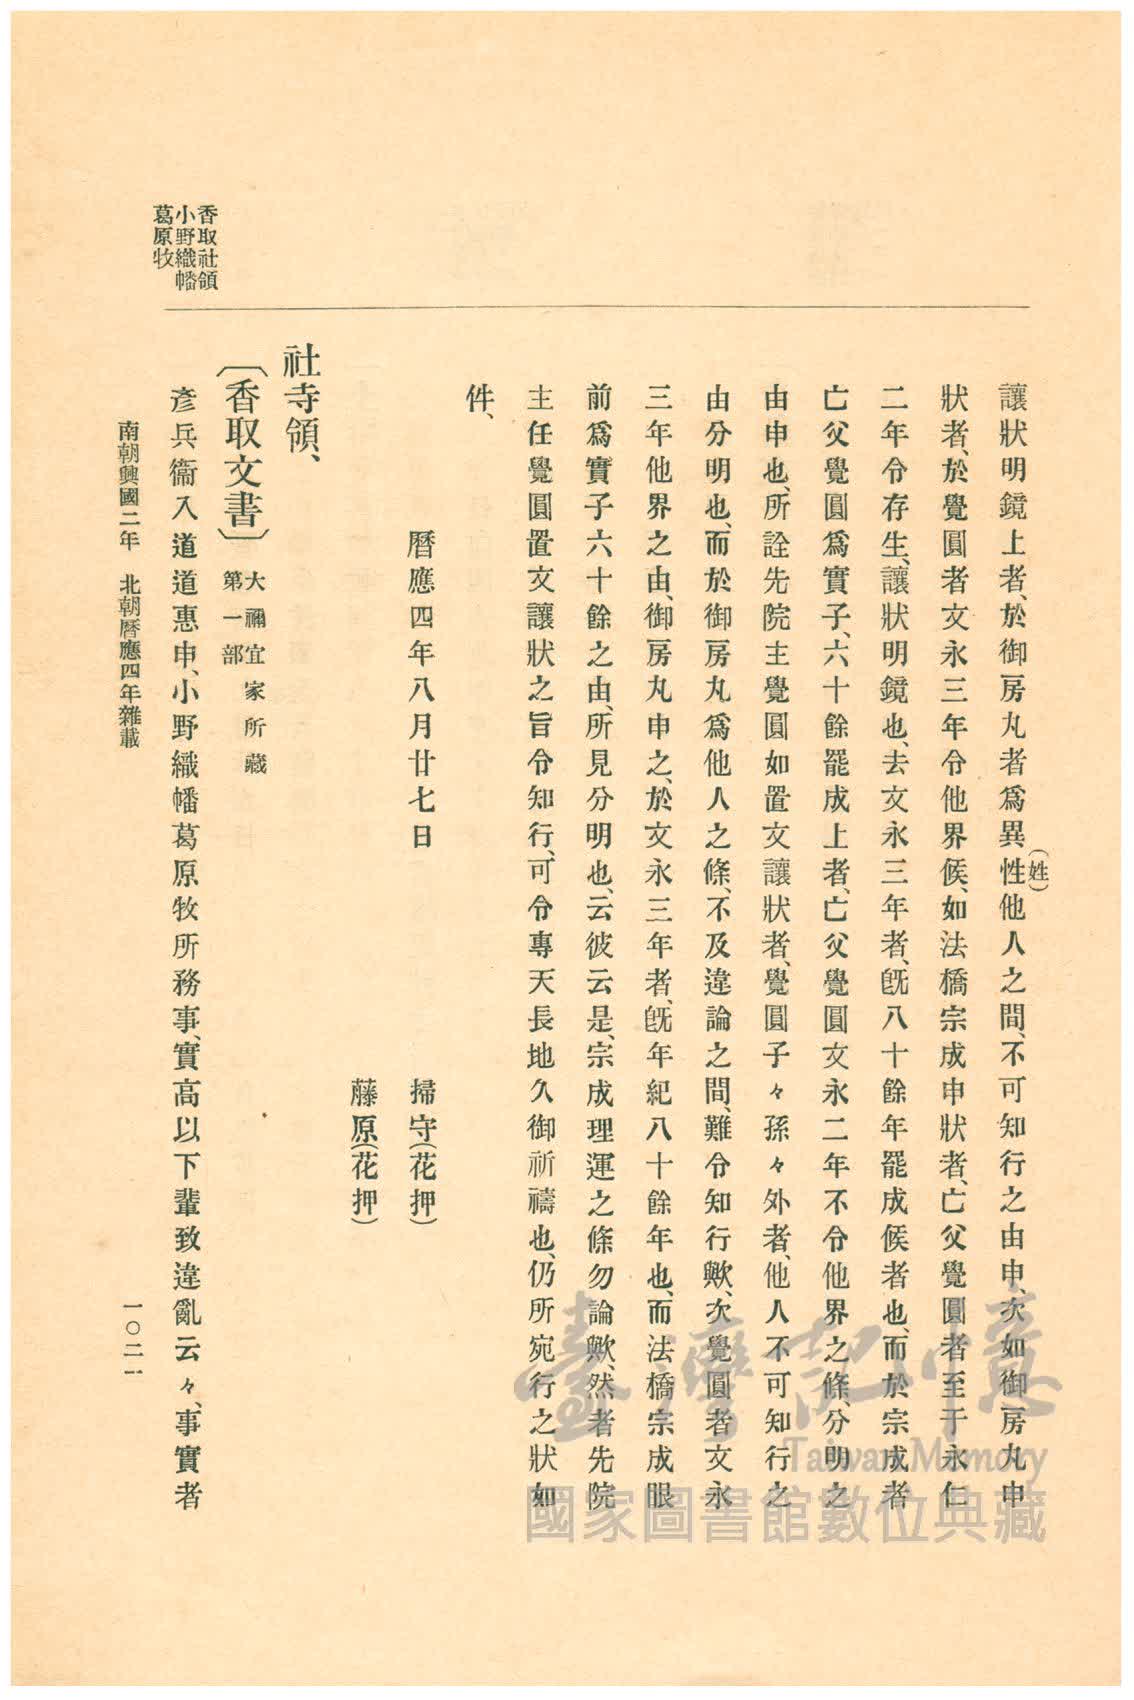 香取社領
小野織幡
葛原牧
讓狀明鏡上者、於御房丸者爲異性(姓)他人之間、不可知行之由申、次如御房丸申
狀者、於覺圓者文永三年令他界候、如法橋宗成申狀者、亡父覺圓者至于永仁
二年令存生、讓狀明鏡也、去文永三年者、旣八十餘年罷成候者也、而於宗成者
亡父覺圓爲實子、六十餘罷成上者、亡父覺圓文永二年不令他界之條、分明之
由申也、所詮先院主覺圓如置文讓狀者、覺圓子々孫々外者、他人不可知行之
由分明也、而於御房丸爲他人之條、不及違論之間、難令知行歟、次覺圓者文永
三年他界之由、御房丸申之、於文永三年者、旣年紀八十餘年也、而法橋宗成眼
前爲實子六十餘之由、所見分明也、云彼云是、宗成理運之條勿論歟、然者先院
主任覺圓置文讓狀之旨令知行、可令專天長地久御祈禱也、仍所宛行之狀如
件、
曆應四年八月廿七日
掃守(花押)
藤原(花押)
社寺領、
〔香取文書〕大禰宜家所藏
第一部
彥兵衞入道道惠申、小野織幡葛原牧所務事、實高以下輩致違亂云々、事實者
南朝興國二年　北朝曆應四年雜載
一〇二一
臺灣記憶
Taiwan Memory
國家圖書館數位典藏